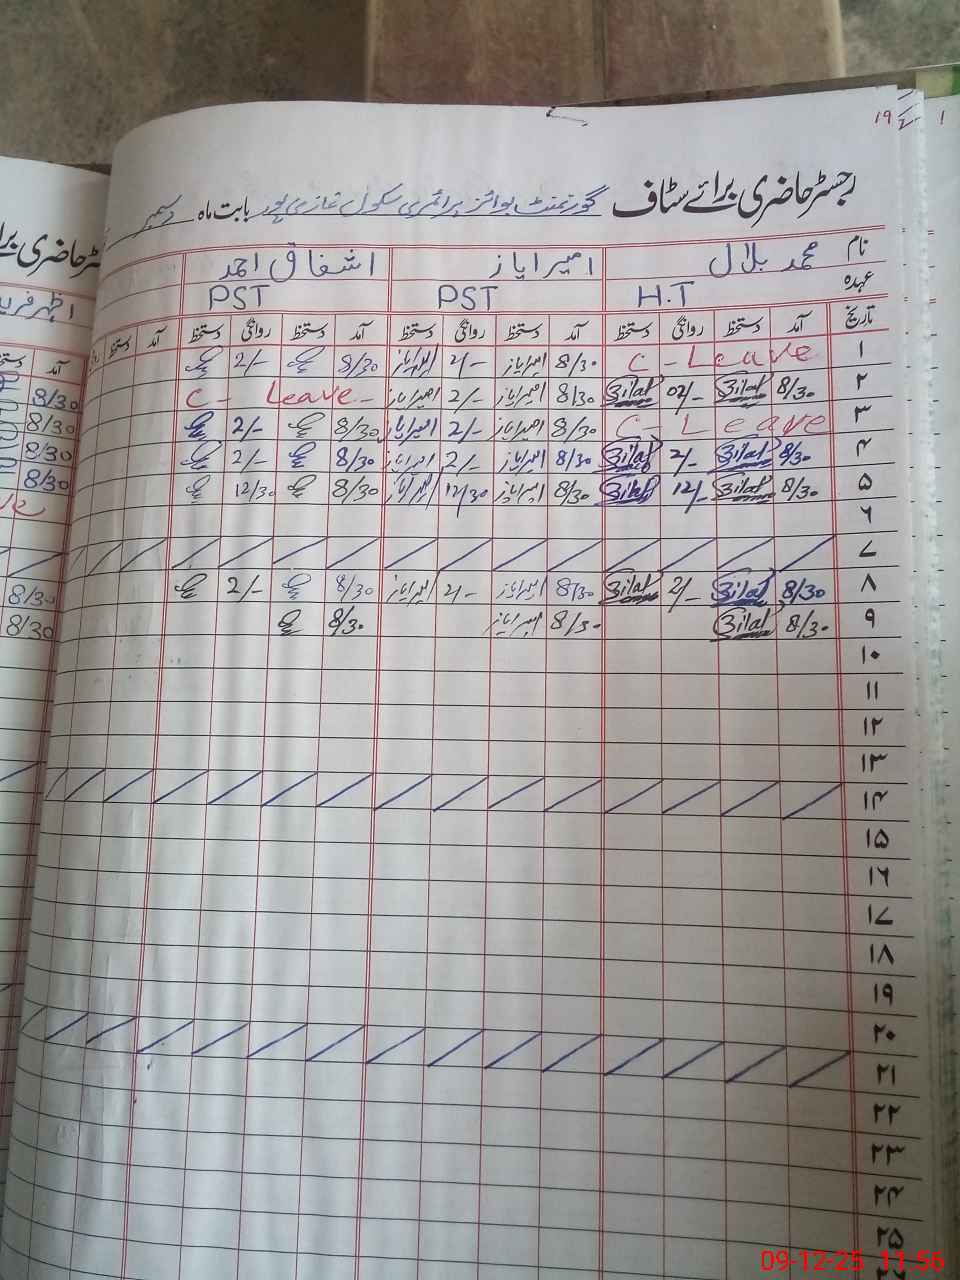 19 1
رجسٹر حاضری برائے سٹاف گورنمنٹ بوائز پرائمری سکول غازی پور بابت ماہ دسمبر
نام محمد بلال امیر ایاز اشفاق احمد
عہدہ H.T PST PST
تاریخ آمد دستخط روانگی دستخط آمد دستخط روانگی دستخط آمد دستخط روانگی دستخط آمد دستخط
۱ C - Leave 8/30 امیر ایاز 2/- امیر ایاز 8/30 2/-
۲ 8/30 Bilal 02/- Bilal 8/30 امیر ایاز 2/- امیر ایاز C - Leave
۳ C - Leave 8/30 امیر ایاز 2/- امیر ایاز 8/30 2/-
۴ 8/30 Bilal 2/- Bilal 8/30 امیر ایاز 2/- امیر ایاز 8/30 2/-
۵ 8/30 Bilal 12/- Bilal 8/30 امیر ایاز 12/30 امیر ایاز 8/30 12/30
۶
۷
۸ 8/30 Bilal 2/- Bilal 8/30 امیر ایاز 2/- امیر ایاز 8/30 2/-
۹ 8/30 Bilal 8/30 امیر ایاز 8/30
۱۰
۱۱
۱۲
۱۳
۱۴
۱۵
۱۶
۱۷
۱۸
۱۹
۲۰
۲۱
۲۲
۲۳
۲۴
۲۵
آمد
8/30
8/30
8/30
8/30
8/30
8/30
09-12-25 11:56